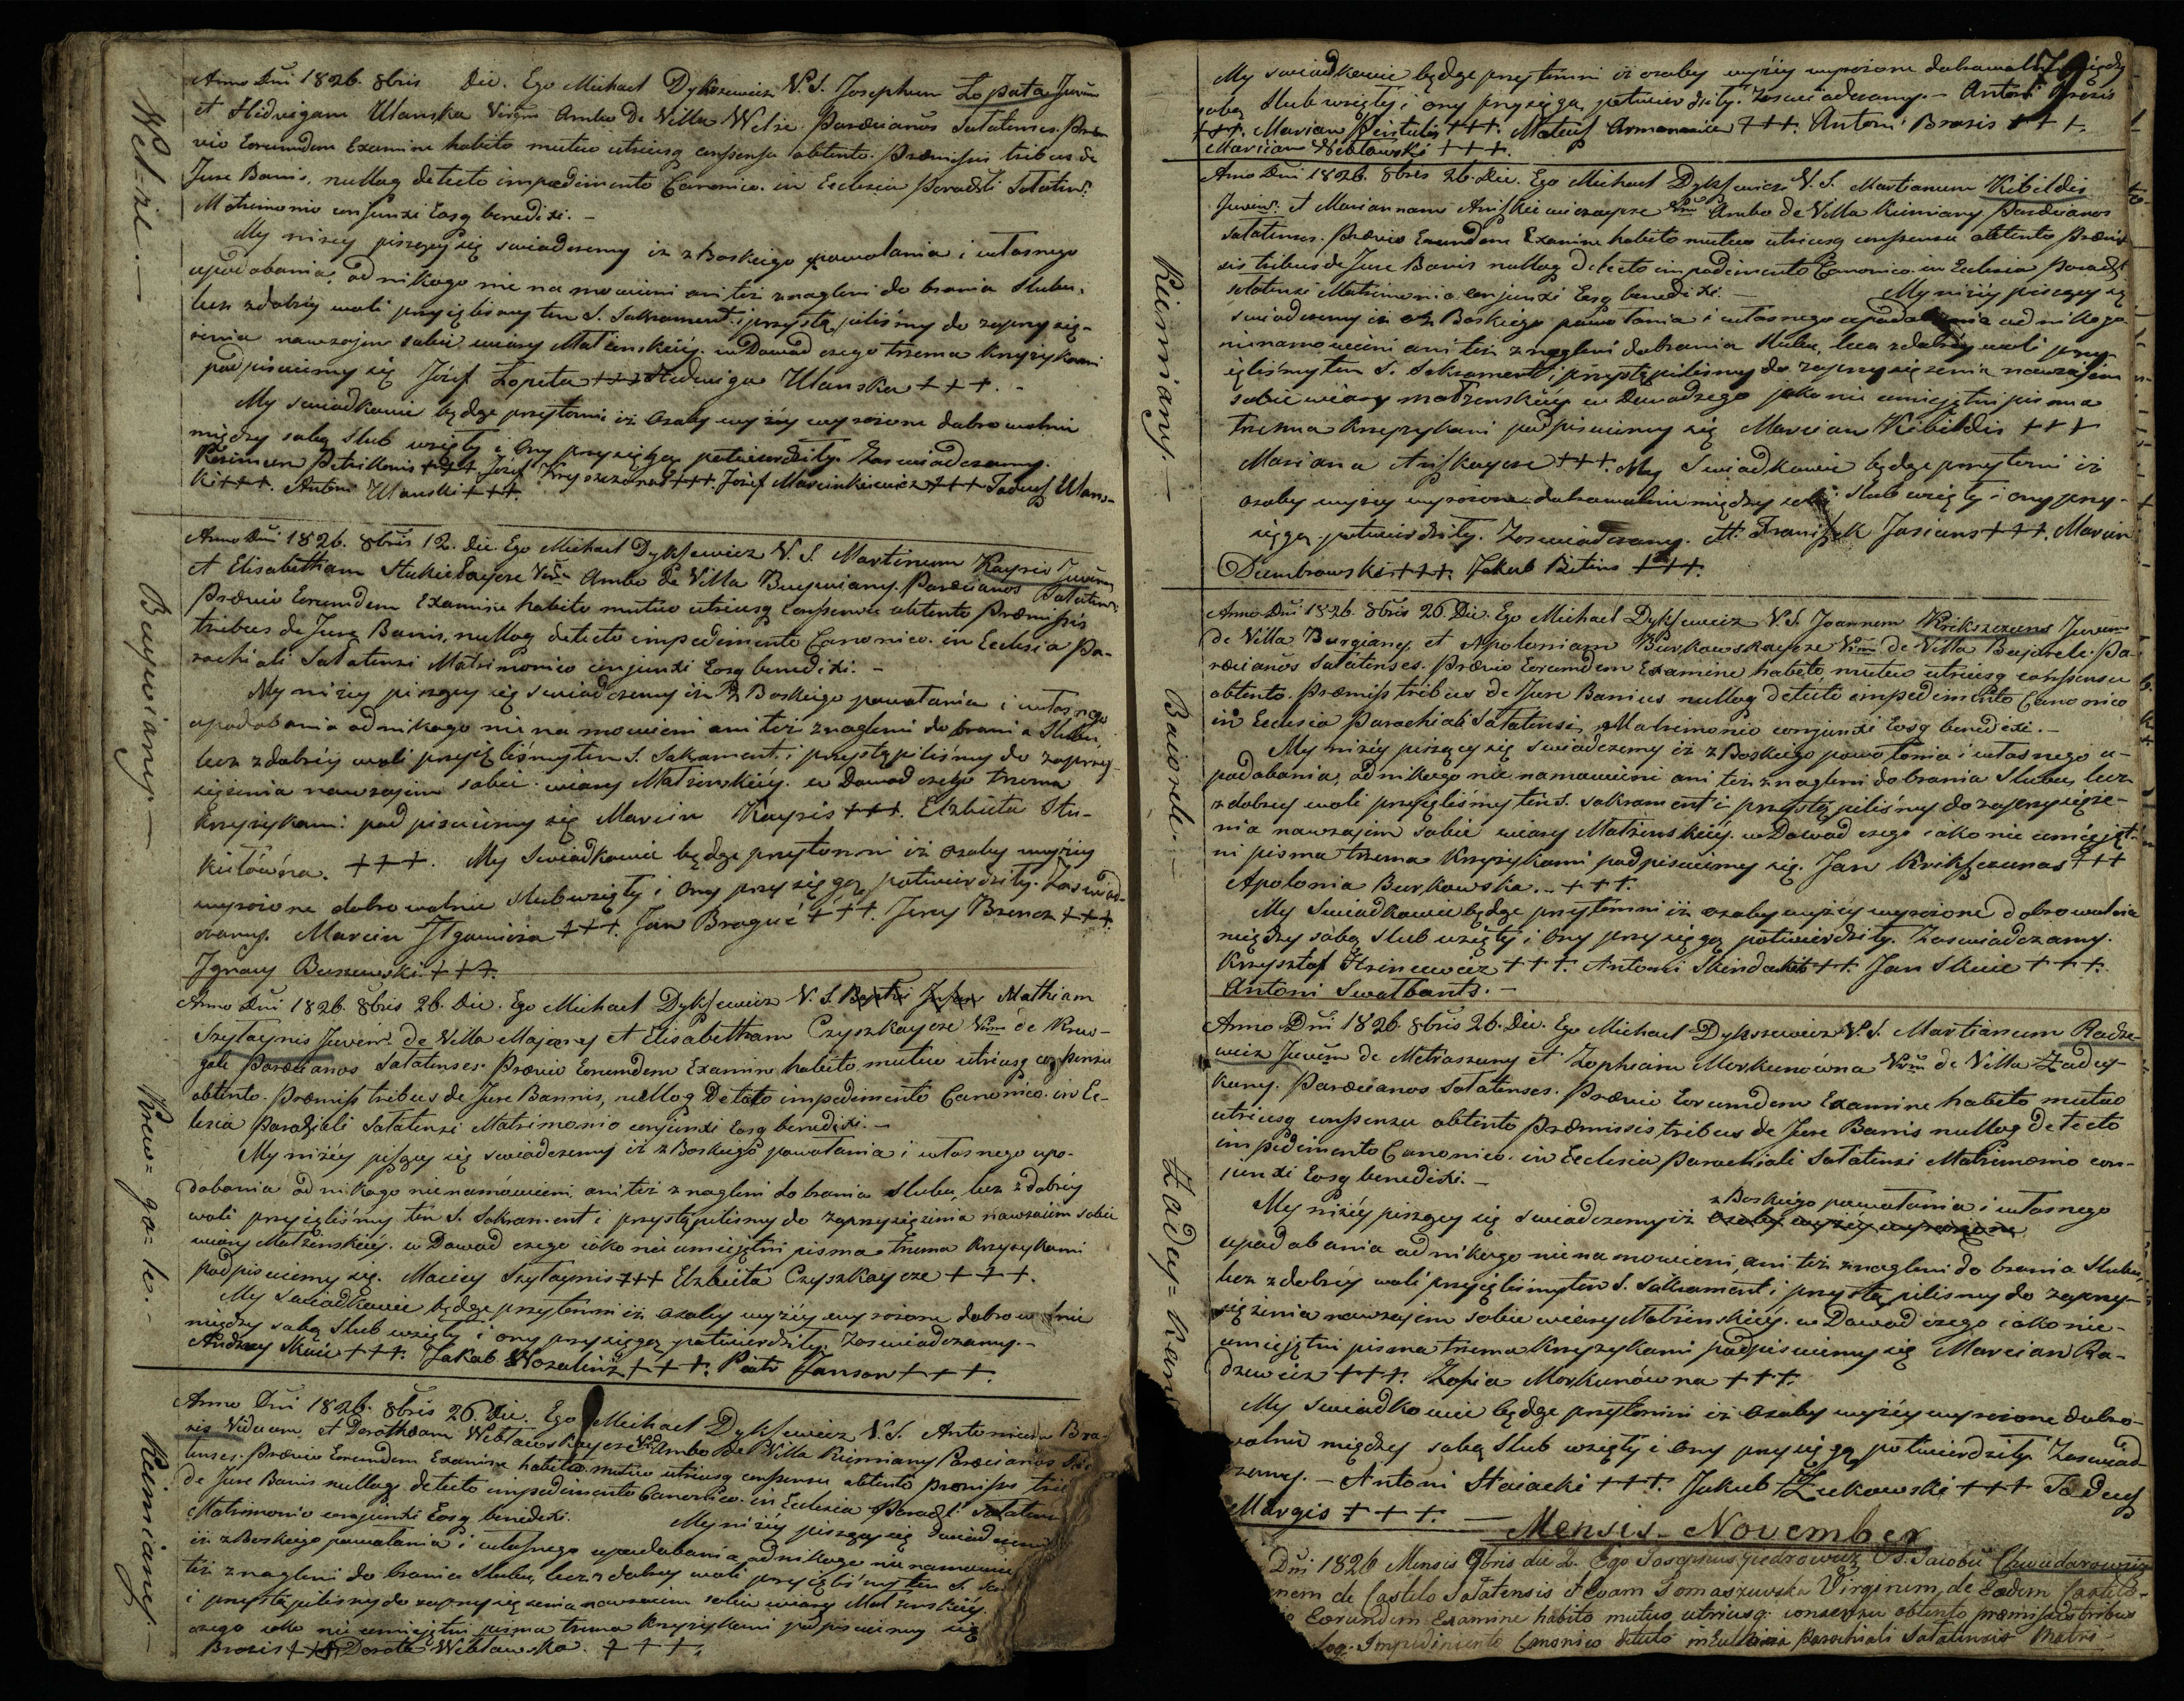 Wel=xe. —
Anno Dni 1826. 8bris Die. Ego Michael Dykszewicz V.S. Josephum Łopata Juven
et Hedvigam Ulanska Virgin Ambo de Villa Welxe. Parœcianos Sałatenses. Præ-
vio Eorumdem Examine habito mutuo utriusq consensu obtento. Præmissis tribus de
Jure Banis, nulloq detecto impedimento Canonico. in Eclesia Paradli Sałatens.
Matrimonio conjunxi Eosq benedixi. —
My niżey piszący się swiadczemy iż z Boskiego powołania i własnego
upodobania, od nikogo nie na mowieni ani też znagleni do brania slubu,
lecz z dobréy woli przyięlismy ten S. Sakrament i przystąpilismy do zaprzysię-
żenia nawzajem sobie wiary Małżenskiéy. w Dowod czego trzema krzyżykami
podpisuiemy się Józef Łopeta +++ Hedwiga Ulanska +++. —
My swiadkowie będąc przytomni iż Osoby wyżéy wyrożone dobrowolnie
między sobą Slub wzięły i Ony przysięgą potwierdziły. Zaswiadczamy.
Kazimierz Petrikonis +++. Józef Kryszczunas +++. Józef Marcinkiewicz +++ Tadeusz Ulans-
ki +++. Antoni Ulanski +++.
Buywiany —
Anno Dni 1826. 8bris 12. Die. Ego Michael Dykszewicz V.S. Martinum Kayris Juvenem
et Elisabetham Stukiełaycze Virg Ambo de Villa Buywiany. Parœcianos Sałatens.
Prævio Eorumdem Examine habito mutuo utriusq Consensu obtento Præmissis
tribus de Jure Banis, nulloq detecto impedimento Canonico. in Eclesia Pa-
rachiali Sałatensi Matrimonio conjunxi Eosq benedixi. —
My niżey piszący się swiadczemy iż z Boskiego powołania i własnego
upodobania od nikogo nie na mowieni ani też znagleni do brania Slubu,
lecz z dobréy woli przyięlismy ten S. Sakrament i przystąpilismy do zaprzy-
siężenia nawzajem sobie wiary Małżenskiéy. w Dowod czego trzema
krzyżykami podpisuiemy się Marcin Kayris +++. Elżbieta Stu-
kiełówna. +++. My Swiadkowie będąc przytomni iż Osoby wyżéy
wyrożone dobrowolnie Slub wzięły i Ony przysięgą potwierdziły. Zaswiad-
czamy. Marcin +++. Jan +++. Jerzy +++.
Ignacy Buszewski. +++.
Krew=ga=le. —
Anno Dni 1826. 8bris 26. Die. Ego Michael Dykszewicz V.S. Mathiam
Szyłaynis Juven. de Villa Majany et Elisabetham Czyszkaycze Virg de Krew-
gale Parœcianos Sałatenses. Prævio Eorumdem Examine habito mutuo utriusq consensu
obtento. Præmiss tribus de Jure Bannis, nulloq Detecto impedimento Canonico. in Ec-
lesia Paradiali Sałatensi Matrimonio conjunxi Eosq benedixi. —
My niżéy piszący się swiadczemy iż z Boskiego powołania i własnego upo-
dobania od nikogo nie namówieni, ani też znagleni do brania slubu, lecz z dobréy
woli przyięlismy ten S. Sakrament i przystąpilismy do zaprzysiężenia nawzaiem sobie
wiary Małżenskiéy. w Dowod czego iako nie umieiętni pisma trzema krzyżykami
podpisuiemy się. Maciey Szyłaynis +++ Elżbieta Czyszkaycze +++.
My Swiadkowie będąc przytomni iż osoby wyżéy wyrożone dobrowolnie
między sobą Slub wzięły i ony przysięgą potwierdziły. Zaswiadczamy. —
Andrzey Skuie +++. Jakub +++. Piotr Janson +++.
Kiemiany. —
Anno Dni 1826. 8bris 26. Die. Ego Michael Dykszewicz V.S. Antonium Bra-
zis Viduum, et Dorotheam Weblawskaycze Ambo de Villa Kiemiany Parœcianos Sała-
tenses. Prævio Eorumdem Examine habito mutuo utriusq consensu obtento Præmissis tri
de Jure Banis nulloq detecto impedimento Canonico. in Eclesia Paradl. Sałaten
Matrimonio conjunxi Eosq benedixi. My niżéy piszący się swiadczemy
iż z Boskiego powołania i własnego upodobania od nikogo nie namowie
też znagleni do brania Slubu, lecz z dobrey woli przyięlismy ten S. Sa
i przystąpilismy do zaprzysiężenia nawzaiem sobie wiary Małżenskiéy.
czego iako nie umieiętni pisma trzema krzyżykami podpisuiemy się
Brazis +++ Dorota Weblawska. +++.
79
My swiadkowie będąc przytomni iż osoby wyżéy wyrożone dobrowolnie między
sobą Slub wzięły i ony przysięgą potwierdziły. Zaswiadczamy. — Antoni Brazis
+++. Marian +++. Mateusz Armonowicz +++. Antoni Brazis +++.
Marcian Weblawski +++.
Kiemiany. —
Anno Dni 1826. 8bris 26. Die. Ego Michael Dykszewicz V.S. Martianum Kibildis
Juven. et Mariannam Aniskiewiczaycze Virg Ambo de Villa Kiemiany Parœcianos
Sałatenses. Prævio Eorumdem Examine habito mutuo utriusq consensu obtento Præmis-
sis tribus de Jure Banis nulloq detecto impedimento Canonico. in Eclesia Paradl
Sałatensi Matrimonio conjunxi Eosq benedixi. — My niżéy piszący się
swiadczemy iż z Boskiego powołania i własnego upodobania od nikogo
nie namowieni ani też znagleni do brania slubu, lecz z dobréy woli przy-
ięlismy ten S. Sakrament i przystąpilismy do zaprzysiężenia nawzajem
sobie wiary małżenskiéy w Dowod czego jako nie umiejętni pisma
trzema krzyżykami podpisuiemy się Marcian Kibildis +++
Mariana Aniskaycze +++. My Swiadkowie będąc przytomni iż
osoby wyżey wyrożone dobrowolnie między sobą Slub wzięły i ony przy-
sięgą potwierdziły. Zaswiadczamy. Franiszek Jasiuns +++. Marcin
Dumbrowski +++. Jakub Bitins +++.
Baiorele. —
Anno Dni 1826. 8bris 26. Die. Ego Michael Dykszewicz V.S. Joannem Krikszczuns Juven
de Villa Burgiany, et Apoloniam Burkowskaycze Virg de Villa Bajorele. Pa-
rœcianos Sałatenses. Prævio Eorumdem Examine habito, mutuo utriusq consensu
obtento. Præmiss tribus de Jure Bannis nulloq detecto impedimento Canonico
in Eclesia Parachiali Sałatensi, Matrimonio conjunxi Eosq benedixi. —
My niżéy piszący się swiadczemy iż z Boskiego powołania i własnego u-
podobania, od nikogo nie namowieni ani też znagleni do brania Slubu, lecz
z dobrey woli przyięlismy ten S. sakrament i przystąpilismy do zaprzysięże-
nia nawzajem sobie wiary Małżenskiéy. w Dowod czego iako nie umieięt-
ni pisma trzema krzyżykami podpisuiemy się. Jan Krikszczunas +++
Apolonia Burkowska. — +++.
My Swiadkowie będąc przytomni iż osoby wyżéy wyrożone dobrowolnie
między sobą slub wzięły i Ony przysięgą potwierdziły. Zaswiadczamy.
Krzysztof +++. Antoni +++. Jan Skuie +++.
Antoni Swatbants. —
Zadey=kany
Anno Dni 1826 8bris 26. Die. Ego Michael Dykszewicz V.S. Martianum Radze-
wicz Juven de Metraszuny et Zophiam Morkunówna Virg de Villa Zadey-
kany. Parœcianos Sałatenses. Prævio Eorumdem Examine habito mutuo
utriusq consensu obtento Præmissis tribus de Jure Banis nulloq detecto
impedimento Canonico. in Eclesia Parachiali Sałatensi Matrimonio con-
junxi Eosq benedixi. —
z Boskiego powołania i własnego
My niżéy piszący się swiadczemy iż osoby wyżéy wyrożone
upodobania od nikogo nie na mowieni, ani też znagleni do brania Slubu,
lecz z dobréy woli przyięlismy ten S. Sakrament i przystąpilismy do zaprzy-
siężenia nawzajem sobie wiary Małżenskiéy. w Dowod czego iako nie-
umiejętni pisma trzema krzyżykami podpisuiemy się Marcian Ra-
dzewicz +++. Zofia Morkunówna +++.
My Swiadkowie będąc przytomni iż Osoby wyżéy wyrożone dobro-
wolnie między sobą slub wzięły i Ony przysięgą potwierdziły Zaswiad-
czamy. — Antoni +++. Jakub Żukowski +++ Tadeusz
Margis +++. —
Mensis. November
Dni 1826 Mensis 9bris die 2. Ego Josephus Giedrowicz V.S. Jacobu Chwiedarowicz
nem de Castelo Sałatensis et Evam Tomaszewska Virginem, de Eodem Castelo-
io Eorundem Examine habito mutuo utriusq. consensu obtento præmissis tribus
loq. Impedimento Canonico detecto in Eclesia Parochiali Sałatensis Matri